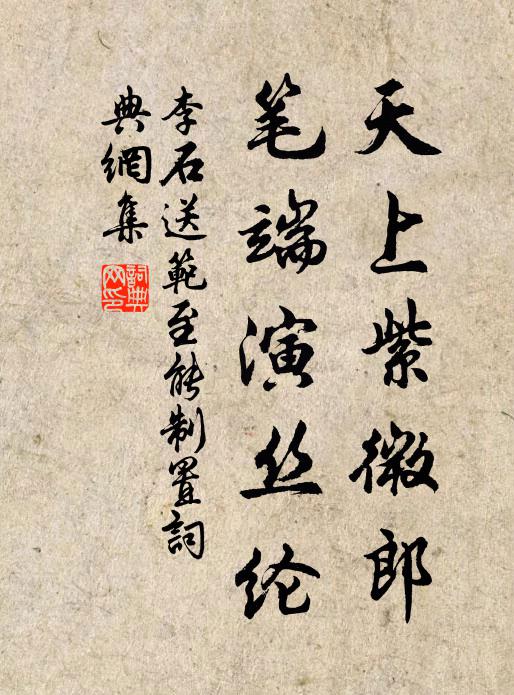 天上紫微郎
笔端演丝纶
李石送範至能制置詞
典網集
詞典
网印